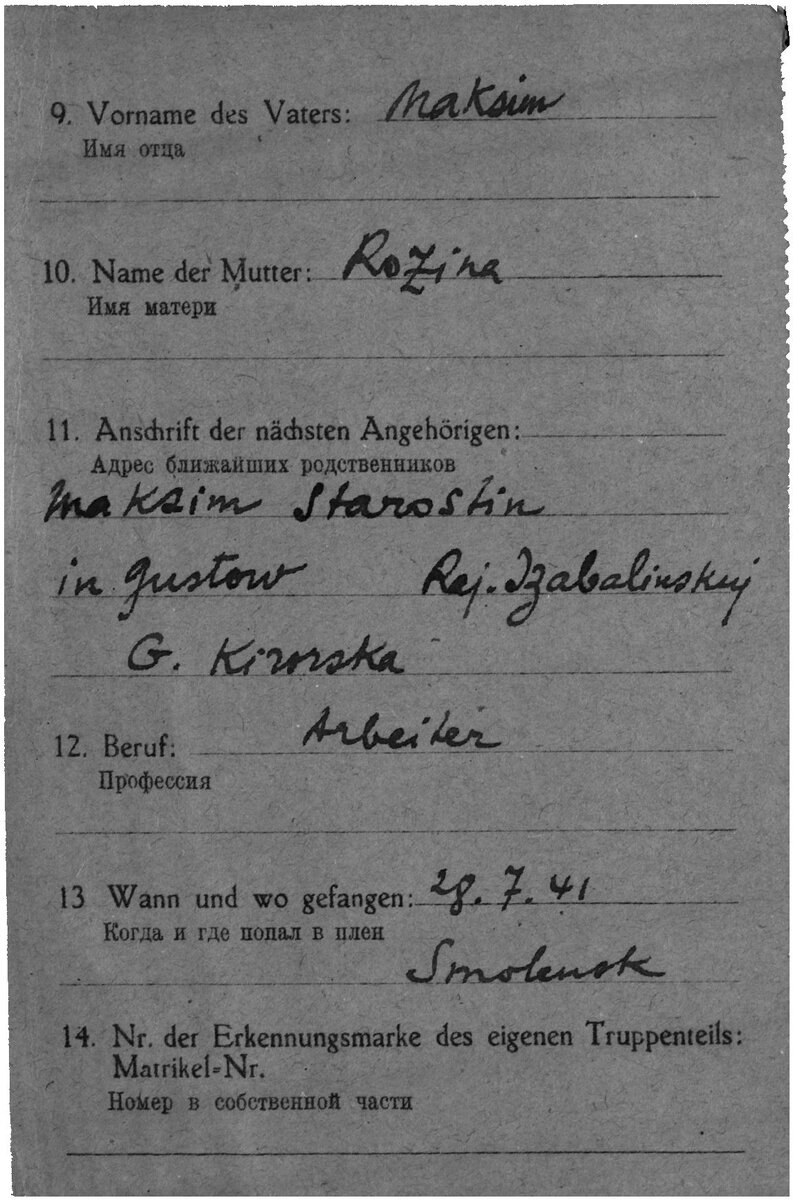 9. Vorname des Vaters: Maksim
Имя отца
10. Name der Mutter: Rozina
Имя матери
11. Anschrift der nächsten Angehörigen:
Адрес ближайших родственников
Maksim Starostin
in Gustow Rej. Izabalinskij
G. Kirovska
12. Beruf: Arbeiter
Профессия
13 Wann und wo gefangen: 28. 7. 41
Когда и где попал в плен
Smolensk
14. Nr. der Erkennungsmarke des eigenen Truppenteils:
Matrikel-Nr.
Номер в собственной части